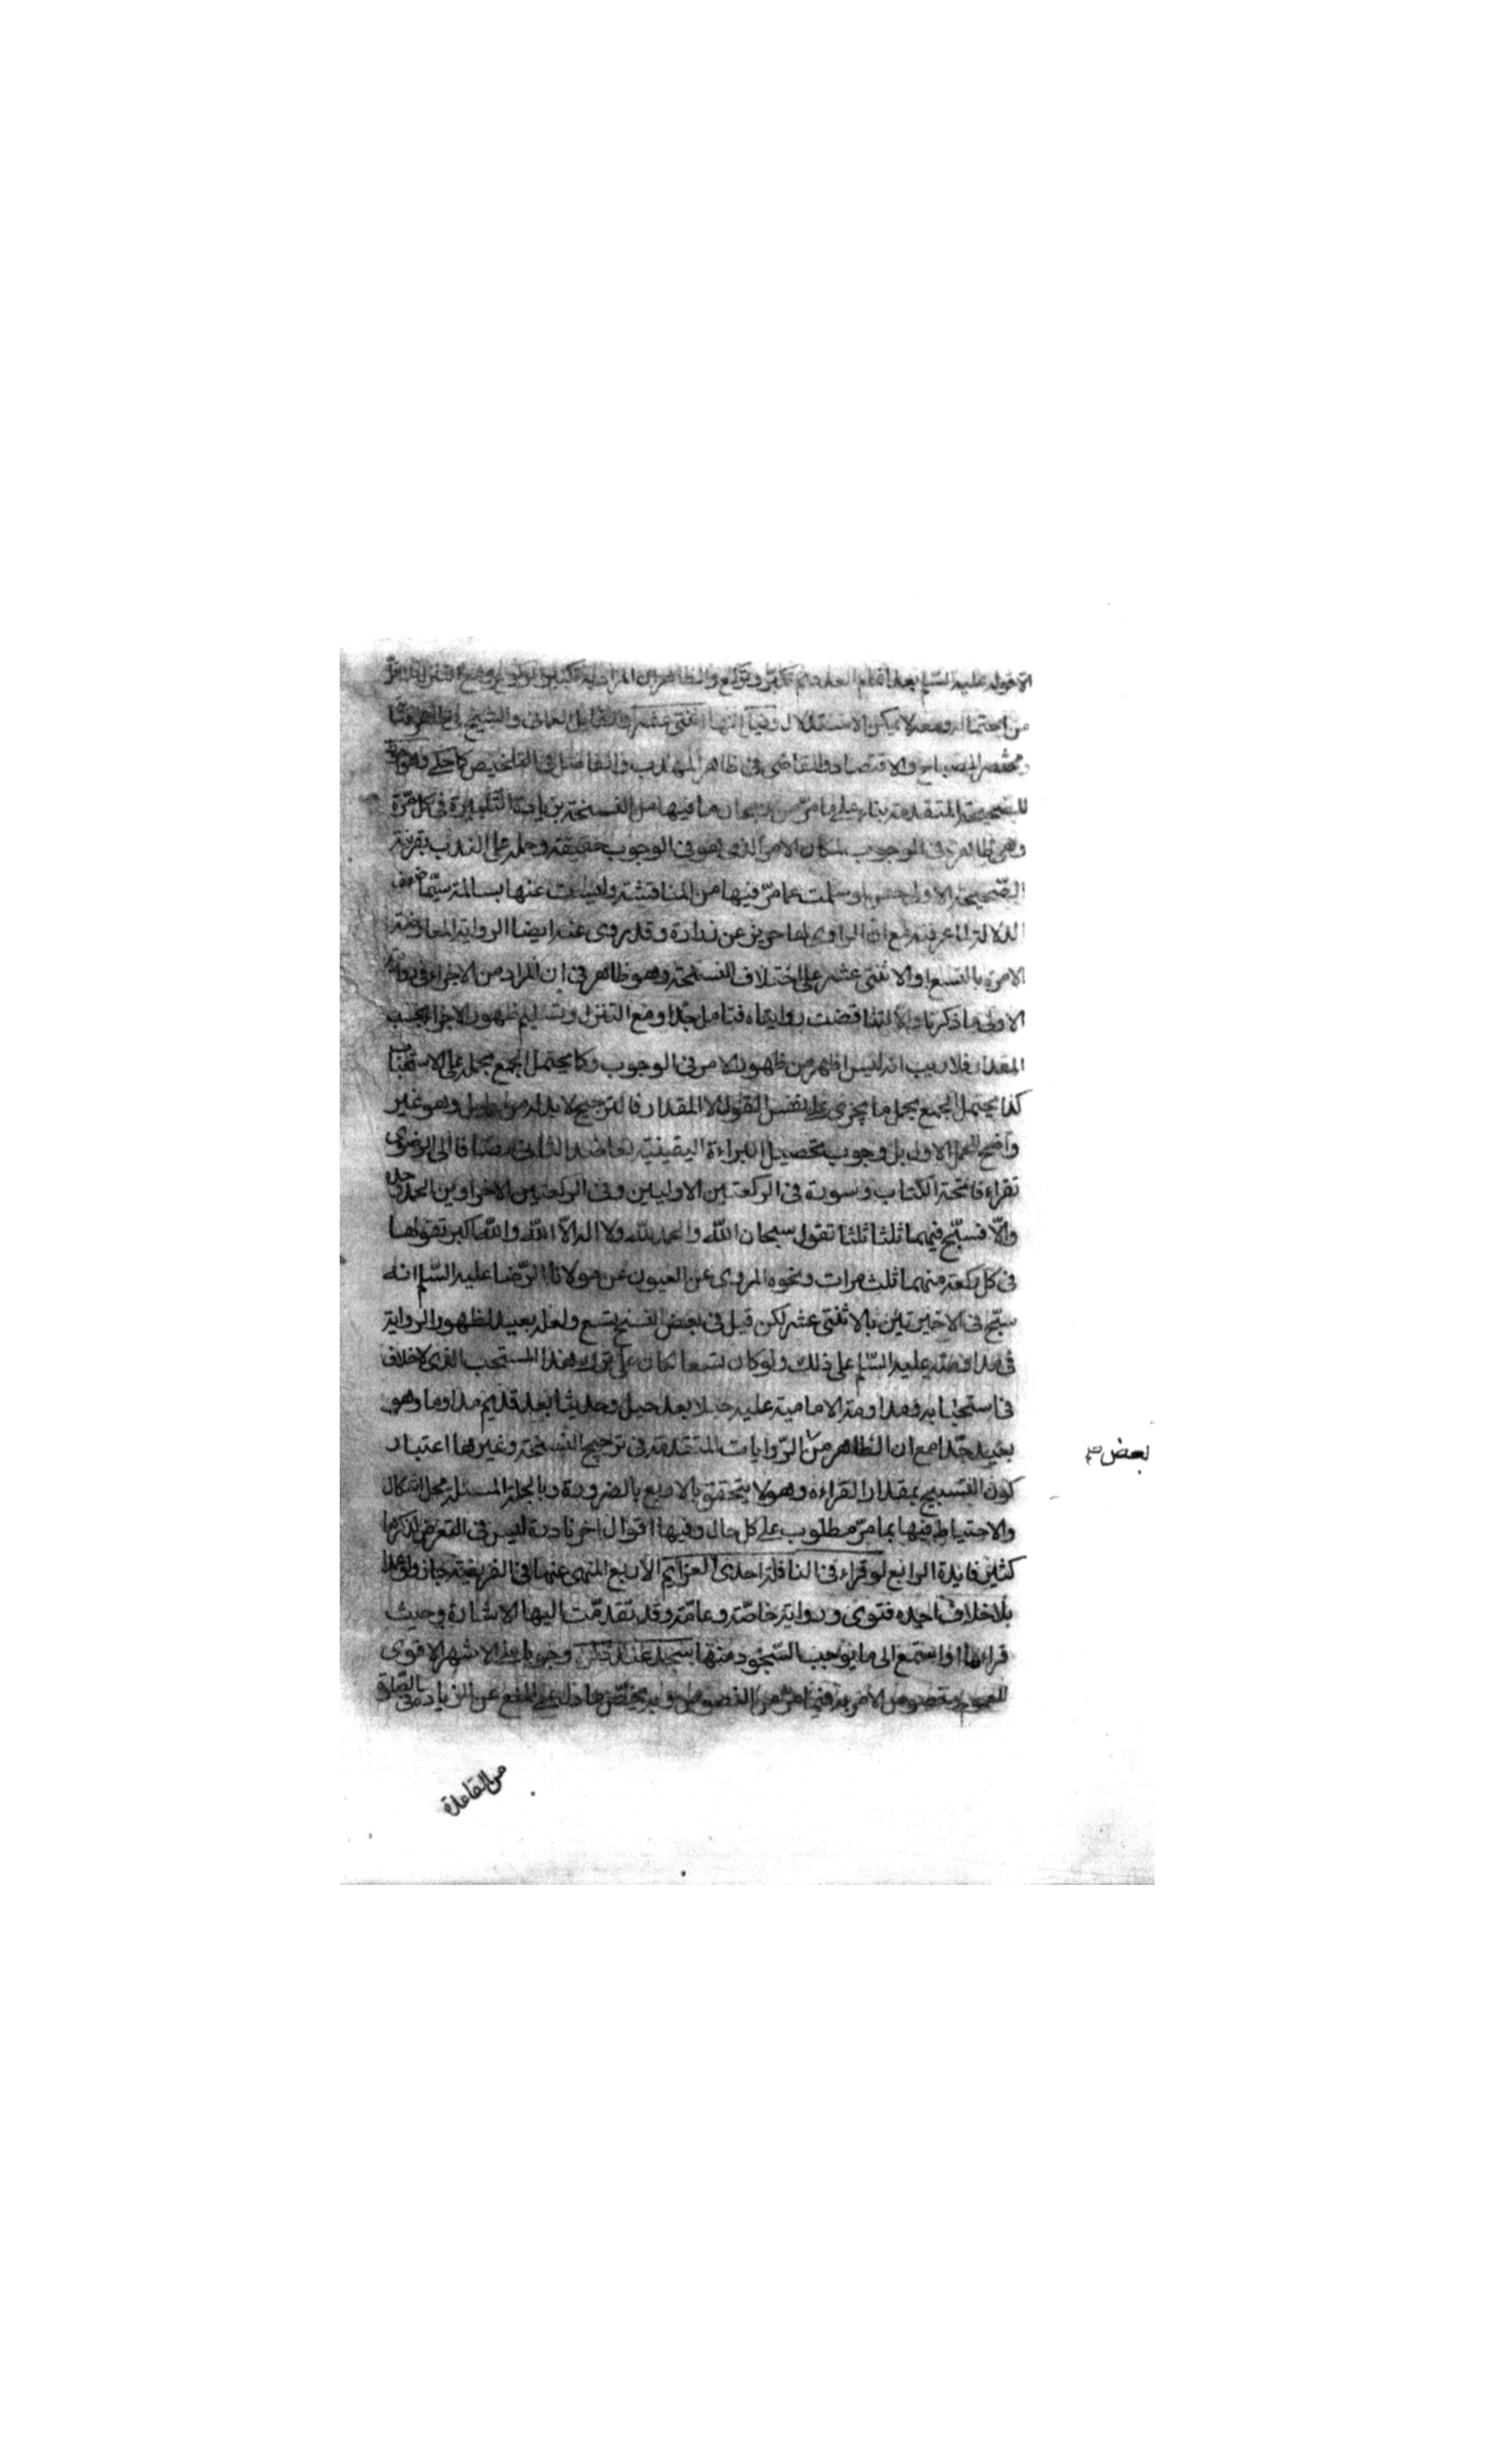 لا قوله عليه السلم بعد اتمام العدد ثم تكبر وتركع والظاهر ان المراد به تكبير الركوع
من احتماله ومعه لا يمكن الاستدلال وقيل انها اثنتى عشرة والقايل العمانى والشيخ في ظاهر
ومختصر المصباح والاقتصاد والقاضى فى ظاهر المهذب والفاضل فى التلخيص كما حكى وهو احوط
للصحيحة المتقدمة بناء على ما مر من رجحان ما فيها من النسخة بزيادة التكبيرة فى كل مرة
وهى ظاهرة فى الوجوب لمكان الامر الذى هو فى الوجوب حقيقة وحمله على الندب بقرينة
الصحيحة الاولى حسن لو سلمت عما مر فيها من المناقشة وليست عنها بسالمة سيما ضعف
الدلالة لمعرفته مع ان الراوى لها حريز عن زرارة وقد روى عنه ايضا الرواية المعارضة
الامرة بالتسع او الاثنتى عشر على اختلاف النسخة وهو ظاهر فى ان المراد من الاجزاء فى روايته
الاولى ما ذكرنا والا لتناقضت روايتاه فتامل جدا ومع التنزل وتسليم ظهور الاجزاء بحسب
المقدار فلا ريب انه ليس اظهر من ظهور الامر فى الوجوب وكما يحتمل الجمع بحمله على الاستحباب
كذا يحتمل الجمع بحمل ما يجزى على نفس القول لا المقدار فالترجيح لا بد له من دليل وهو غير
واضح للحمل الاول بل وجوب تحصيل البراءة اليقينية يعاضد الثانى مضافا الى الرضوى
تقراء فاتحة الكتاب وسورة فى الركعتين الاوليين وفى الركعتين الاخراوين الحمد وحده
والا فسبح فيهما ثلثا ثلثا تقول سبحان الله والحمد لله ولا اله الا الله والله اكبر تقولها
فى كل ركعة منهما ثلث مرات ونحوه المروى عن العيون عن مولانا الرضا عليه السلم انه
سبح فى الاخيرتين بالاثنتى عشر لكن قيل فى بعض النسخ تسع ولعله بعيد لظهور الرواية
فى مداومته عليه السلم على ذلك ولو كان تسعا لكان على ترك هذا المستحب الذى لا خلاف
فى استحبابه ومداومة الامامية عليه جيلا بعد جيل وحديثا بعد قديم مداوما وهو
بعيد جدا مع ان الظاهر من الروايات المتقدمة فى ترجيح النسخة وغيرها اعتبار
بعض
كون التسبيح بمقدار القراءة وهو لا يتحقق بالاربع بالضرورة وبالجملة المسئلة محل اشكال
والاحتياط فيها بما مر مطلوب على كل حال وفيها اقوال اخر نادرة ليس فى التعرض لذكرها
كثير فايدة الرابع لو قراء فى النافلة احدى العزايم الاربع المنهى عنها فى الفريضة جاز
بلا خلاف اجده فتوى ورواية خاصة وعامة وقد تقدمت اليها الاشارة وحيث
قراءها او استمع الى ما يوجب السجود منها يسجد عند ذكره وجوبا على الاشهر الاقوى
للعموم وخصوص الامر به فيما مر من النصوص وبه يخصص ما دل على المنع عن الزيادة فى الصلوة
من القاعدة